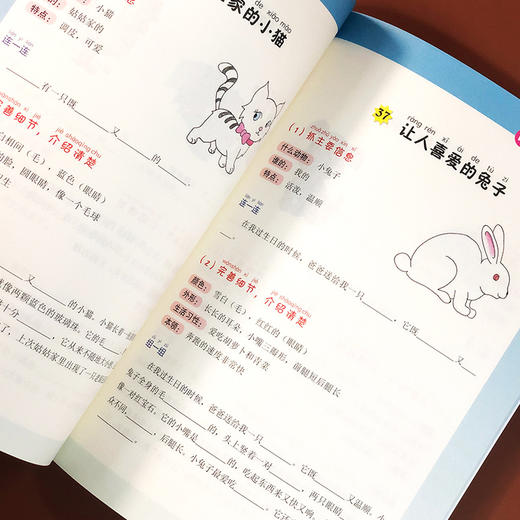 de xiǎo māo
家的小猫
小猫
的：
姑姑家的
特点：
调皮，可爱
lián yì lián
连一连
有一只既______又______的______。
wánshàn xì jié jiè shàoqīng chu
完善细节，介绍清楚
白相间（毛），蓝色（眼睛）
的脸，圆眼睛，像一个毛球
______又______的小猫。小猫长着一
就像两颗蓝色的玻璃珠。它的毛
十分______，它从来不能
了，上次姑姑家里出现了一只老
37
ràng rén xǐ ài de tù zi
让人喜爱的兔子
zhuā zhǔ yào xìn xī
（1）抓主要信息
什么动物：小兔子
谁的：我的
特点：活泼，温顺
lián yì lián
连一连
在我过生日的时候，爸爸送给我一只______，它既______又
______。
wánshàn xì jié jiè shàoqīng chu
（2）完善细节，介绍清楚
颜色：雪白（毛），红红的（眼睛）
外形：长长的耳朵，小嘴三瓣形，前腿短后腿长
生活习性：爱吃胡萝卜和青菜
本领：奔跑的速度非常快
zǔ yì zǔ
组一组
在我过生日的时候，爸爸送给我一只______。它既______又温顺。小
兔子全身的毛______的，头上竖着一对______，两只眼睛
像一对红宝石。它的小嘴是______的，吃起东西来又快又响，
众不同，______，后腿长。小兔子最爱吃______
它还